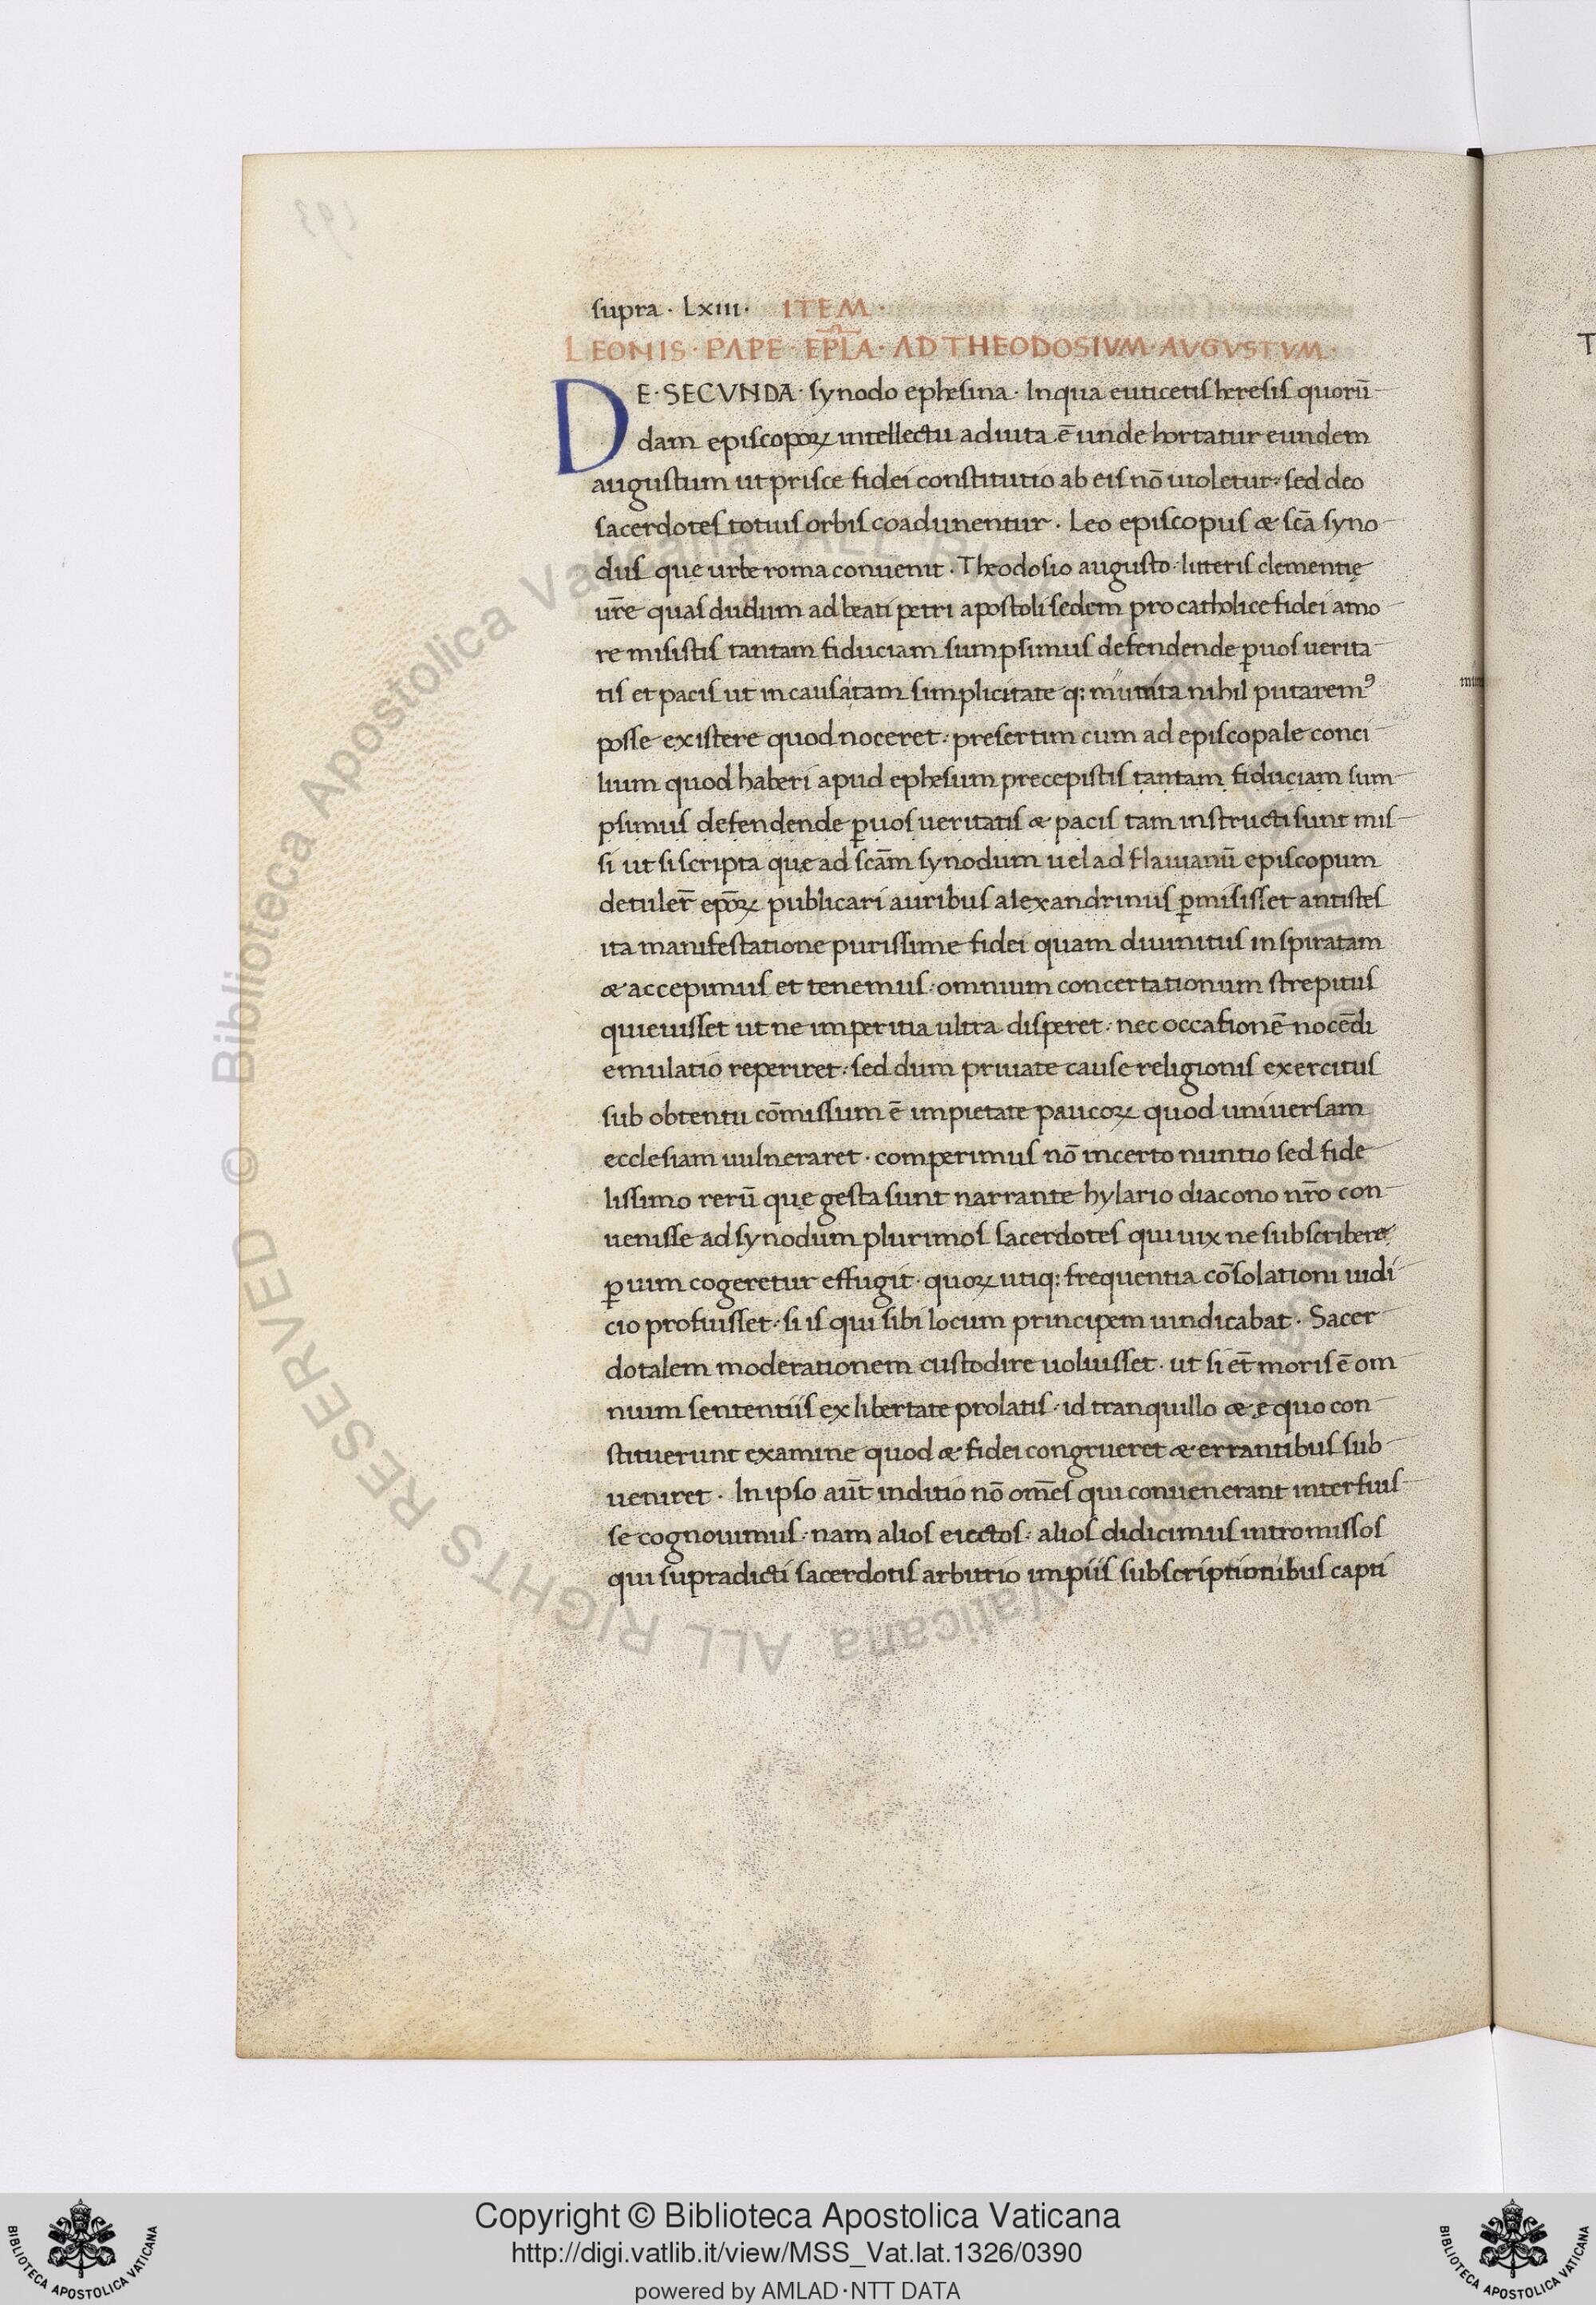 supra · Lxiii · ITEM ·
LEONIS · PAPE · EPL̅A · AD THEODOSIVM · AVGVSTVM ·
DE · SECVNDA · synodo ephesina · In qua euticetis heresis quorū
dam episcopoꝝ intellectu adiuta ē unde hortatur eundem
augustum ut prisce fidei constitutio ab eis nō uioletur · sed deo
sacerdotes totius orbis coadunentur · Leo episcopus & sc̄a syno
dus que urbe roma conuenit · Theodosio augusto · litteris clementię
ur̄e quas dudum ad beati petri apostoli sedem pro catholice fidei amo
re misistis tantam fiduciam sumpsimus defendende ꝑ uos uerita
tis et pacis ut in causa tam simplicitate q: munita nihil putaremꝰ
posse existere quod noceret · presertim cum ad episcopale conci
lium quod haberi apud ephesum precepistis tantam fiduciam sum
psimus defendende ꝑ uos ueritatis & pacis tam instructi sunt mis
si ut si scripta que ad sc̄am synodum uel ad flauianū episcopum
detuler̄ ep̄oꝝ publicari auribus alexandrinus ꝑmisisset antistes
ita manifestatione purissime fidei quam diuinitus inspiratam
& accepimus et tenemus · omnium concertationum strepitus
quieuisset ut ne imperitia ultra disperet · nec occasionē nocēdi
emulatio reperiret · sed dum priuate cause religionis exercitus
sub obtentu cōmissum ē impietate paucoꝝ quod uniuersam
ecclesiam uulneraret · comperimus nō incerto nuntio sed fide
lissimo rerū que gesta sunt narrante hylario diacono nr̄o con
uenisse ad synodum plurimos sacerdotes qui uix ne subscribere
ꝑ uim cogeretur effugit · quoꝝ utiq: frequentia cōsolationi iudi
cio profuisset · si is qui sibi locum principem uindicabat · Sacer
dotalem moderationem custodire uoluisset · ut si et̄ moris ē om
nium sententiis ex libertate prolatis · id tranquillo & ęquo con
stituerunt examine quod & fidei congrueret & errantibus sub
ueniret · In ipso aut̄ inditio nō om̄es qui conuenerant interfuis
se cognouimus · nam alios eiectos · alios didicimus intromissos
qui supradicti sacerdotis arbitrio impiis subscriptionibus capti
© Biblioteca Apostolica Vaticana ALL RIGHTS RESERVED
© Biblioteca Apostolica Vaticana ALL RIGHTS RESERVED
Copyright © Biblioteca Apostolica Vaticana
http://digi.vatlib.it/view/MSS_Vat.lat.1326/0390
powered by AMLAD·NTT DATA
BIBLIOTECA APOSTOLICA VATICANA
BIBLIOTECA APOSTOLICA VATICANA